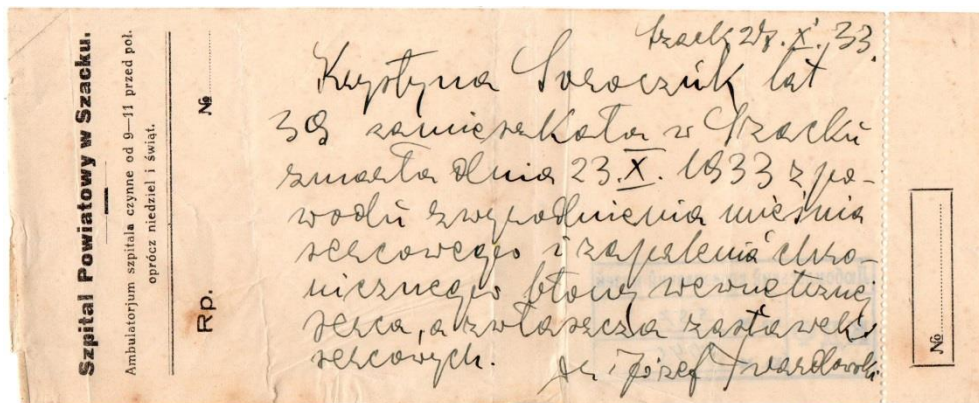 Szpital Powiatowy w Szacku.
Ambulatorjum szpitala czynne od 9—11 przed poł.
oprócz niedziel i świąt.
№
Rp.
Szack 28. X. 33.
Krystyna Soroczuk lat
39 zamieszkała w Szacku
zmarła dnia 23. X. 1933 z po-
wodu zwyrodnienia mięśnia
sercowego i zapalenia chro-
nicznego błony wewnętrznej
serca, a zwłaszcza zastawek
sercowych.
dr. Józef Twardowski
№